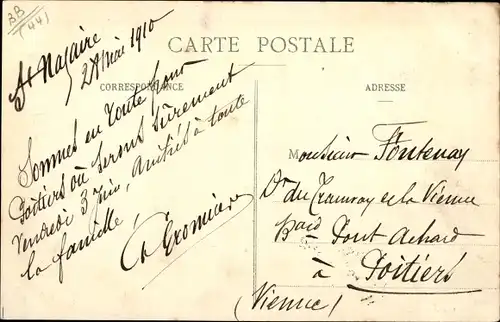 BB
(44)
St Nazaire
28 Mai 1910
CARTE POSTALE
CORRESPONDANCE
ADRESSE
Sommes en route pour
Poitiers où serons sûrement
Vendredi 3 Juin, amitiés à toute
la famille,
Monsieur Fontenay
Dr du Tramway de la Vienne
Bard Pont Achard
à Poitiers
(Vienne)